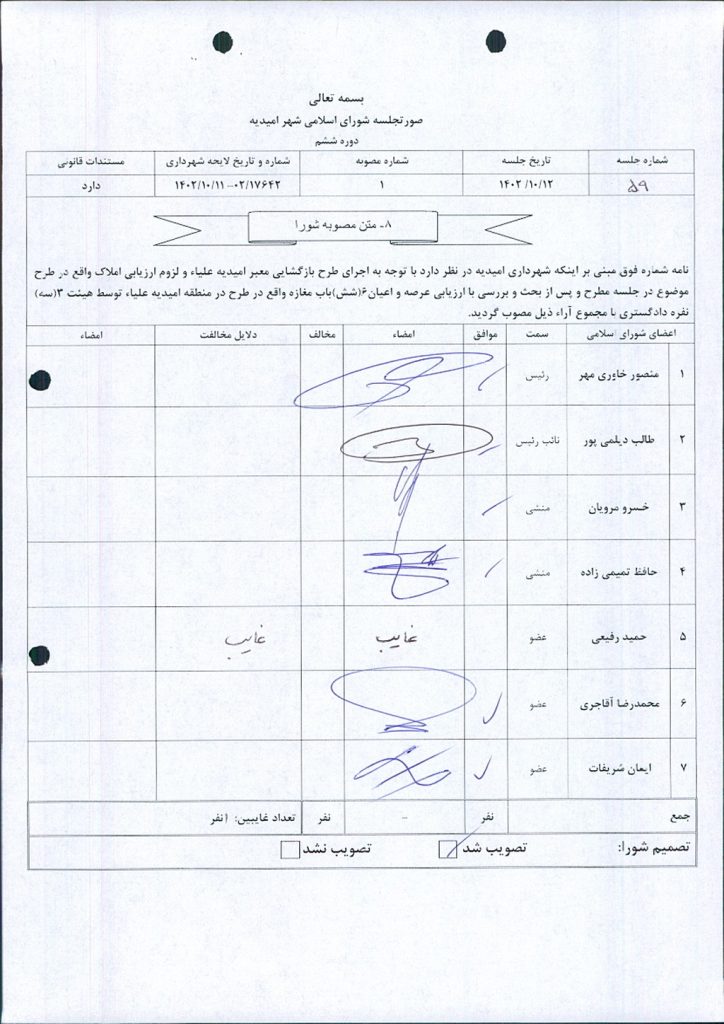 بسمه تعالی
صورتجلسه شورای اسلامی شهر امیدیه
دوره ششم
شماره جلسه تاریخ جلسه شماره مصوبه شماره و تاریخ لایحه شهرداری مستندات قانونی
۵۹ ۱۴۰۲/۱۰/۱۲ ۱ ۱۴۰۲/۱۰/۱۱-۰۲/۱۷۶۴۲ دارد
۸- متن مصوبه شورا
نامه شماره فوق مبنی بر اینکه شهرداری امیدیه در نظر دارد با توجه به اجرای طرح بازگشایی معبر امیدیه علیاء و لزوم ارزیابی املاک واقع در طرح
موضوع در جلسه مطرح و پس از بحث و بررسی با ارزیابی عرصه و اعیان۶(شش)باب مغازه واقع در طرح در منطقه امیدیه علیاء توسط هیئت ۳(سه)
نفره دادگستری با مجموع آراء ذیل مصوب گردید.
اعضای شورای اسلامی سمت موافق امضاء مخالف دلایل مخالفت امضاء
۱ منصور خاوری مهر رئیس
۲ طالب دیلمی پور نائب رئیس
۳ خسرو مرویان منشی
۴ حافظ تمیمی زاده منشی
۵ حمید رفیعی عضو غایب غایب
۶ محمدرضا آقاجری عضو
۷ ایمان شریفات عضو
جمع نفر - نفر تعداد غایبین: ۱نفر
تصمیم شورا: تصویب شد تصویب نشد